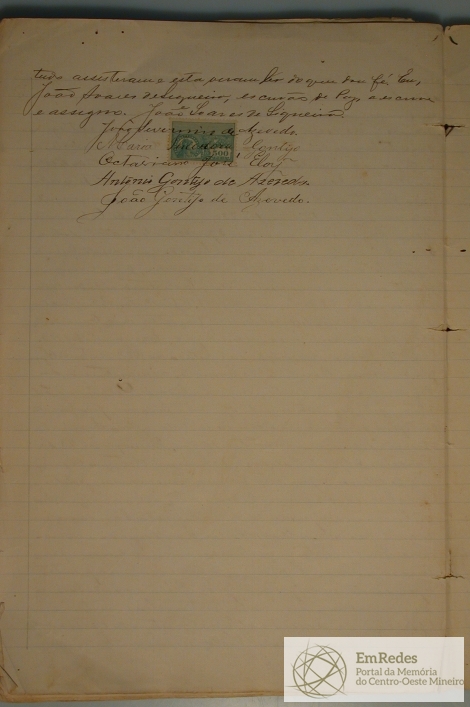 tudo assisteram e esta viram ler do que dou fé. Eu,
João Soares de Siqueira, escrivão de Paz a escrevi
e assigno. João Soares de Siqueira
José Severino de Azevedo.
Maria Gontijo
500
Octaviano José Eloy
Antonio Gontijo de Azevedo.
João Gontijo de Azevedo.
EmRedes
Portal da Memória
do Centro-Oeste Mineiro